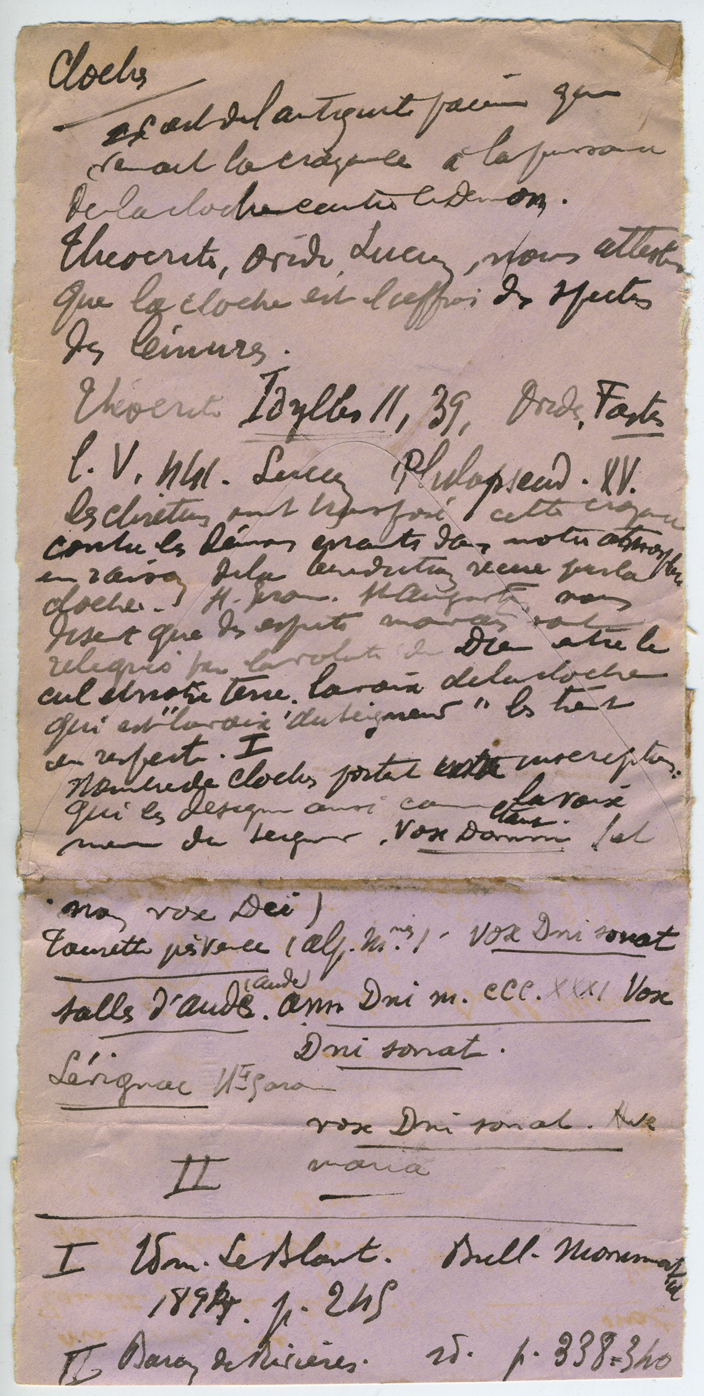 Cloches
c'est de l'antiquité païenne que
venait la croyance à la puissance
de la cloche contre le Demon.
Theocrite, Ovide Lucien, nous attestent
que la cloche est l'effroi des spectres
des lémures.
Théocrite Idylles II, 39, Ovide, Fastes
l. V, 441. Lucien Philopseud. XV.
les chretiens ont transposé cette croyance
contre les démons errants dans notre atmosphère
en raison de la benediction recue par la
cloche. St Augustin nous
disent que des esprits mauvais sont
relegués par la volonté de Dieu entre le
ciel et notre terre. la voix de la cloche
qui est "la voix du seigneur" les tient
en respect. I
Nombre de cloches portent inscription.
qui les designe aussi comme étant la voix
meme du seigneur. Vox Domini (et
non vox Dei)
(alp. mmes) - Vox Dni sonat
salles d'aude (aude). ann Dni m. ccc. XXXI Vox
Dni sonat.
Sérignac Hte Garonne
vox Dni sonat. Ave
maria
II
I Edm. Le Blant. Bull. Monumental
189 p. 245
II Baron de Rivières. id. p. 338=340